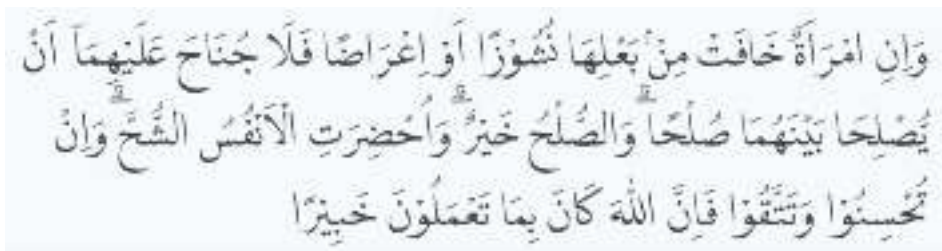 وَاِنِ امْرَاَةٌ خَافَتْ مِنْۢ بَعْلِهَا نُشُوْزًا اَوْ اِعْرَاضًا فَلَا جُنَاحَ عَلَيْهِمَآ اَنْ
يُّصْلِحَا بَيْنَهُمَا صُلْحًا ۗ وَالصُّلْحُ خَيْرٌ ۗ وَاُحْضِرَتِ الْاَنْفُسُ الشُّحَّ ۗ وَاِنْ
تُحْسِنُوْا وَتَتَّقُوْا فَاِنَّ اللّٰهَ كَانَ بِمَا تَعْمَلُوْنَ خَبِيْرًا